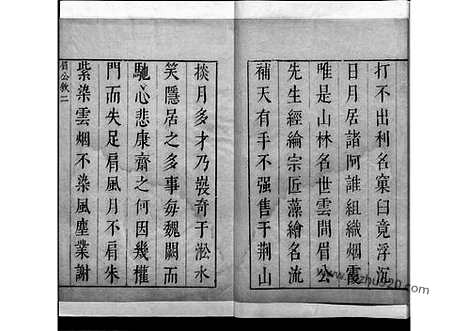 打不出利名窠臼竟浮沉
日月居諸阿誰組織烟霞
唯是山林名世雲間眉公
先生經綸宗匠藻繪名流
補天有手不强售于荆山
掞月多才乃裝奇于淞水
笑隱居之多事每魏闕而
馳心悲康齋之何因幾權
門而失足肩風月不肩朱
紫染雲烟不染風塵業謝
眉公敘二